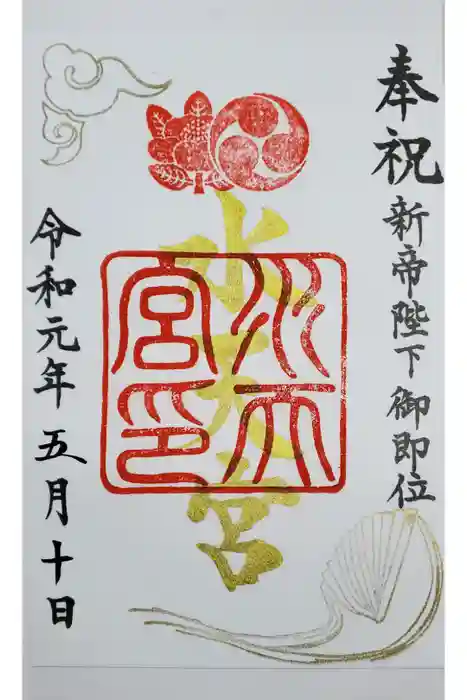 奉祝
新帝陛下御即位
水天宮
水天宮印
令和元年五月十日